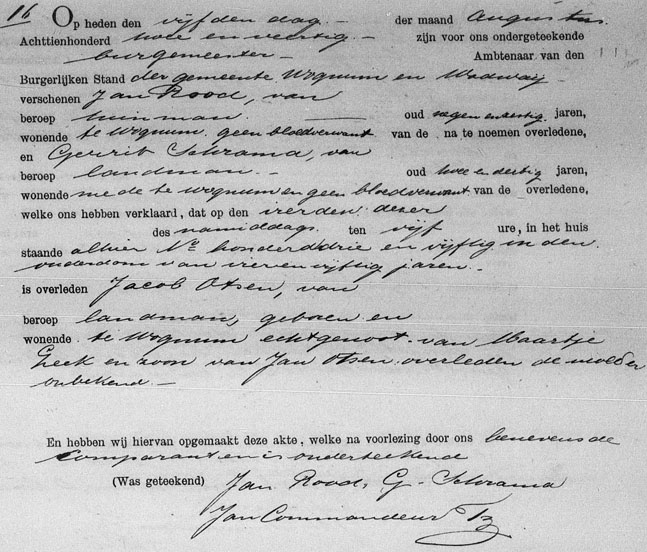 16 Op heden den vijfden dag - der maand Augustus
Achttienhonderd twee en veertig - zijn voor ons ondergeteekende
burgemeester - Ambtenaar van den
Burgerlijken Stand der gemeente Wognum en Wadway
verschenen Jan Rood, van
beroep tuinman. - oud negen en zestig jaren,
wonende te Wognum, geen bloedverwant van de na te noemen overledene,
en Gerrit Schrama, van
beroep landman. - oud twee en dertig jaren,
wonende mede te Wognum en geen bloedverwant van de overledene,
welke ons hebben verklaard, dat op den vierden dezer
des namiddags ten vijf ure, in het huis
staande alhier No honderddrie en vijftig in den
ouderdom van vier en vijftig jaren. -
is overleden Jacob Otsen, van
beroep landman, geboren en
wonende te Wognum echtgenoot van Maartje
en zoon van Jan Otsen overleden de moeder
onbekend. -
En hebben wij hiervan opgemaakt deze akte, welke na voorlezing door ons benevens de
comparanten is onderteekend
(Was geteekend) Jan Rood, G. Schrama
Jan Commandeur Tz